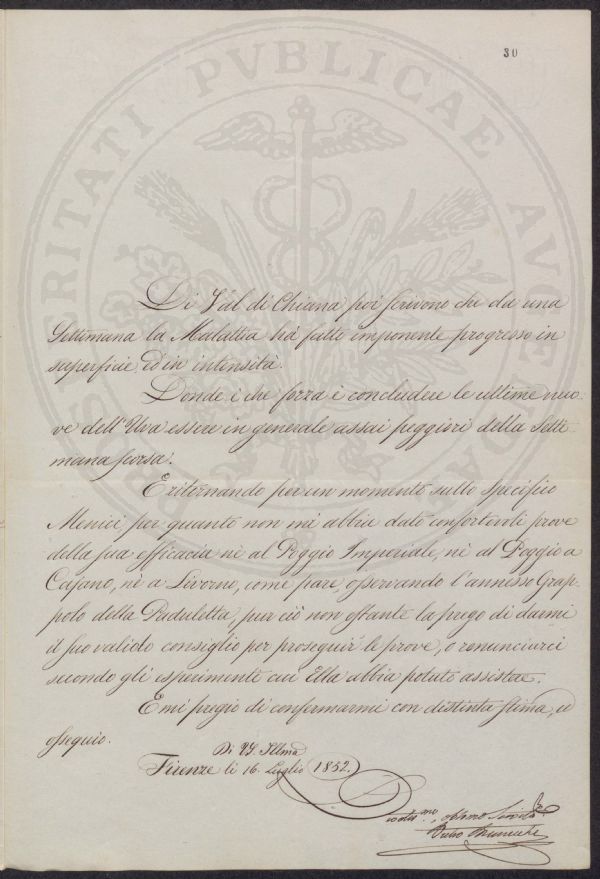 30
PROSPERITATI PVBLICAE AVGENDAE
Di Val di Chiana poi scrivono che da una
Settimana la Malattia hà fatto imponente progresso in
superficie ed in intensità.
Donde è che forza è concludere le ultime nuo-
ve dell'Uva essere in generale assai peggiori della Setti-
mana scorsa.
E ritornando per un momento sullo Specifico
Menici, per quanto non mi abbia dato confortevoli prove
della sua efficacia nè al Poggio Imperiale, nè al Poggio a
Cajano, nè a Livorno, come pare osservando l'annesso Grap-
polo della Paduletta, pur ciò non ostante la prego di darmi
il suo valido consiglio per proseguir le prove, o renunciarci
secondo gli esperimenti cui Ella abbia potuto assistere.
E mi pregio di confermarmi con distinta stima, ed
ossequio.
Di VS. Illma
Firenze li 16. Luglio 1852.
Devotmo obbmo Servitre